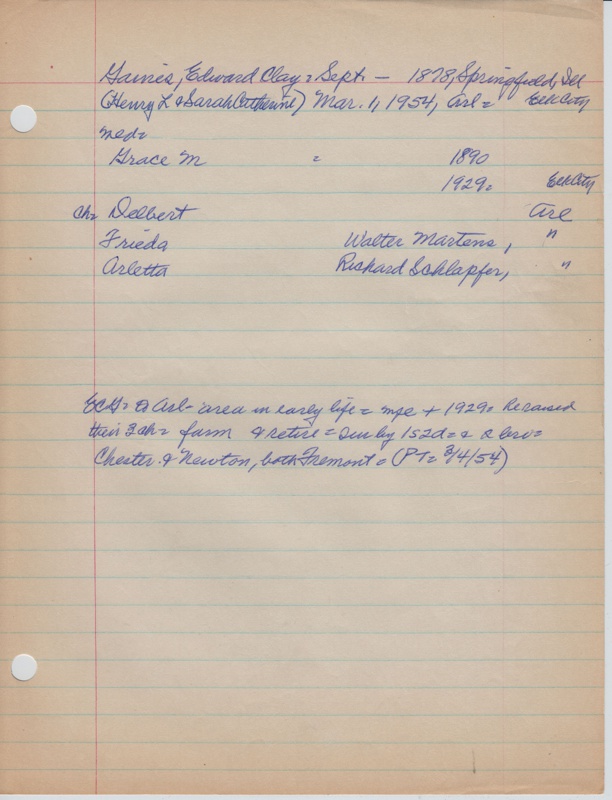 Gaines, Edward Clay = Sept. — 1878, Springfield, Ill
(Henry L & Sarah Catherine) Mar. 1, 1954, Arl = Elk City
med=
Grace M = 1890
1929= Elk City
ch= Delbert Arl
Frieda Walter Martens, "
Arletta Richard Schlapfer, "
ECG= to Arl- area in early life = mpe + 1929= he raised
their 3 ch= farm & retire = sur by 1s2d= & 2 bro=
Chester & Newton, both Fremont = (PT= 3/4/54)